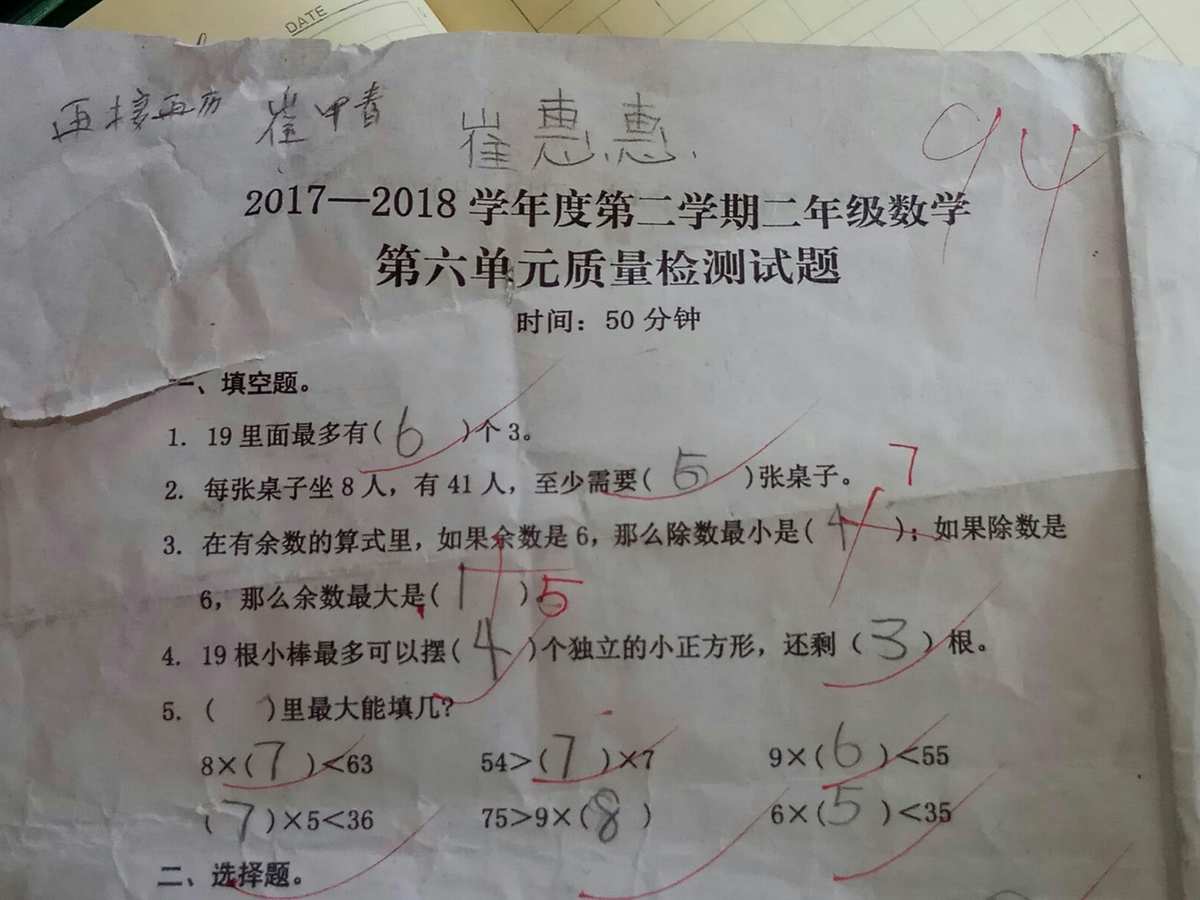 DATE
再接再厉 崔甲春 崔惠惠 94
2017—2018学年度第二学期二年级数学
第六单元质量检测试题
时间：50分钟
一、填空题。
1. 19里面最多有( 6 )个3。
2. 每张桌子坐8人，有41人，至少需要( 5 )张桌子。
7
3. 在有余数的算式里，如果余数是6，那么除数最小是( 4 )；如果除数是
6，那么余数最大是( 1 )。5
4. 19根小棒最多可以摆( 4 )个独立的小正方形，还剩( 3 )根。
5. ( )里最大能填几?
8×( 7 )<63 54>( 7 )×7 9×( 6 )<55
( 7 )×5<36 75>9×( 8 ) 6×( 5 )<35
二、选择题。